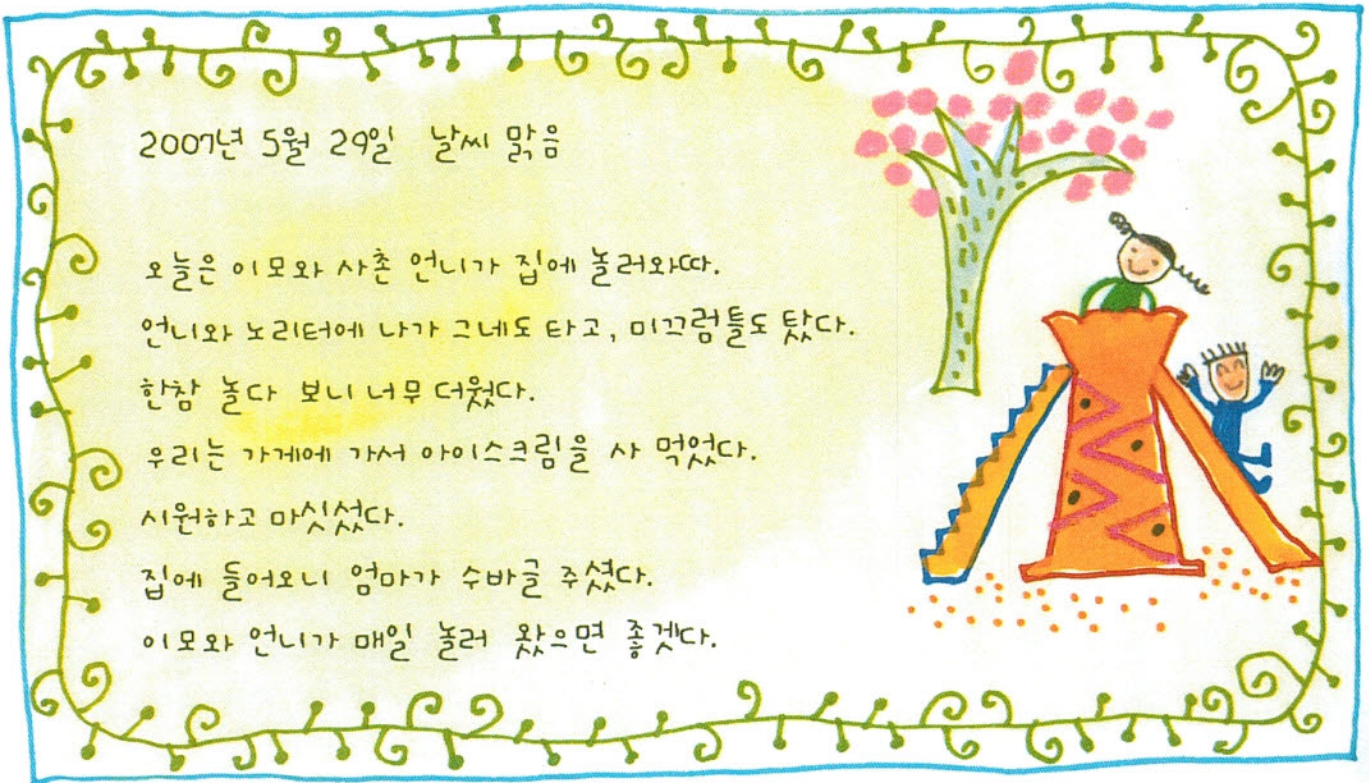 2007년 5월 29일 날씨 맑음
오늘은 이모와 사촌 언니가 집에 놀러와따.
언니와 노리터에 나가 그네도 타고, 미끄럼틀도 탔다.
한참 놀다 보니 너무 더웠다.
우리는 가게에 가서 아이스크림을 사 먹었다.
시원하고 마싯섰다.
집에 들어오니 엄마가 수바글 주셨다.
이모와 언니가 매일 놀러 왔으면 좋겟다.